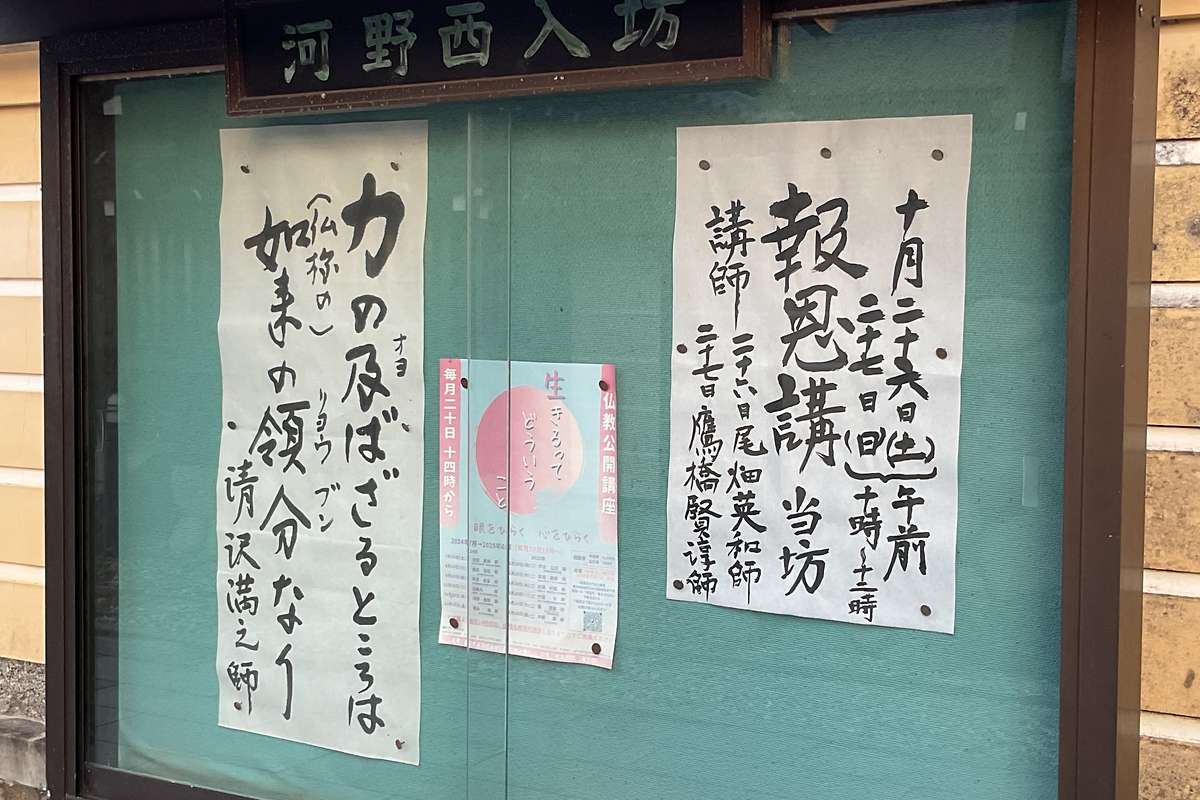 河野西入坊
十月二十六日(土)午前
二十七日(日)十時~十二時
報恩講 当坊
講師 二十六日尾畑英和師
二十七日鷹橋賢淳師
仏教公開講座
生きるって
どういう
こと
毎月二十日 十四時から
眼をひらく 心をひらく
力の及ばざるところは
オヨ
(仏様の)
如来の領分なり
リョウ ブン
清沢満之師